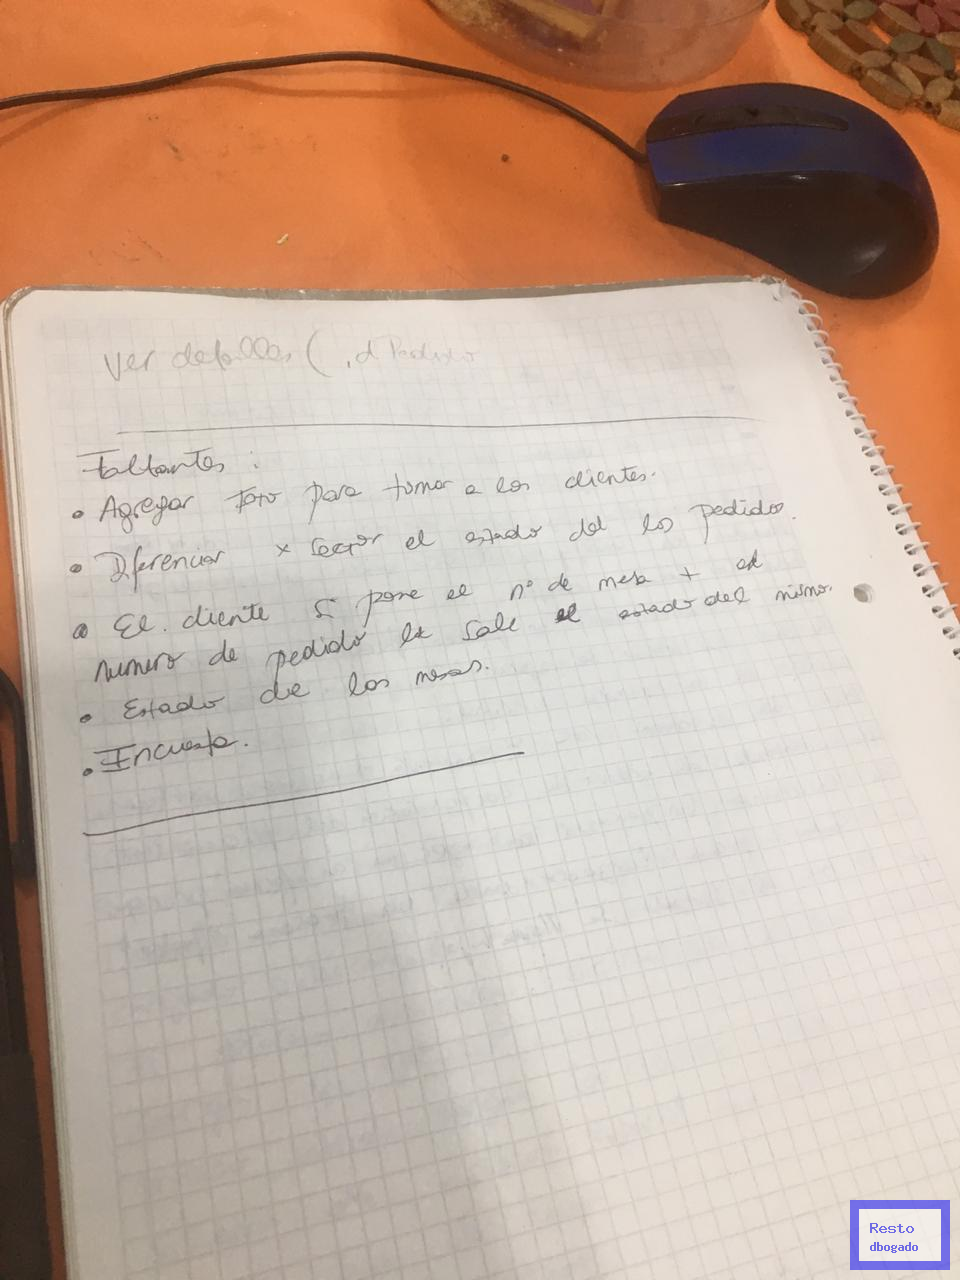 Ver detalles ( idPedido
Faltantes :
• Agregar Foto para tomar a los clientes.
• Diferenciar x sector el estado del los pedidos.
• El cliente si pone el n° de mesa + el
numero de pedido le sale el estado del mismo.
• Estado de las mesas.
• Encuesta.
Resto
dbogado